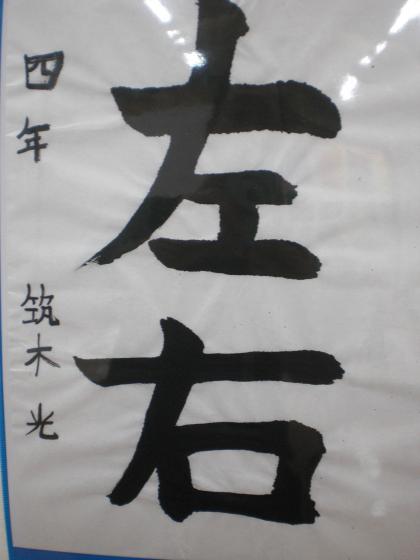 左右
四年 筑木光